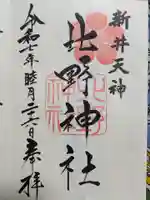 新井天神
北野神社
令和七年睦月二六日奉拝